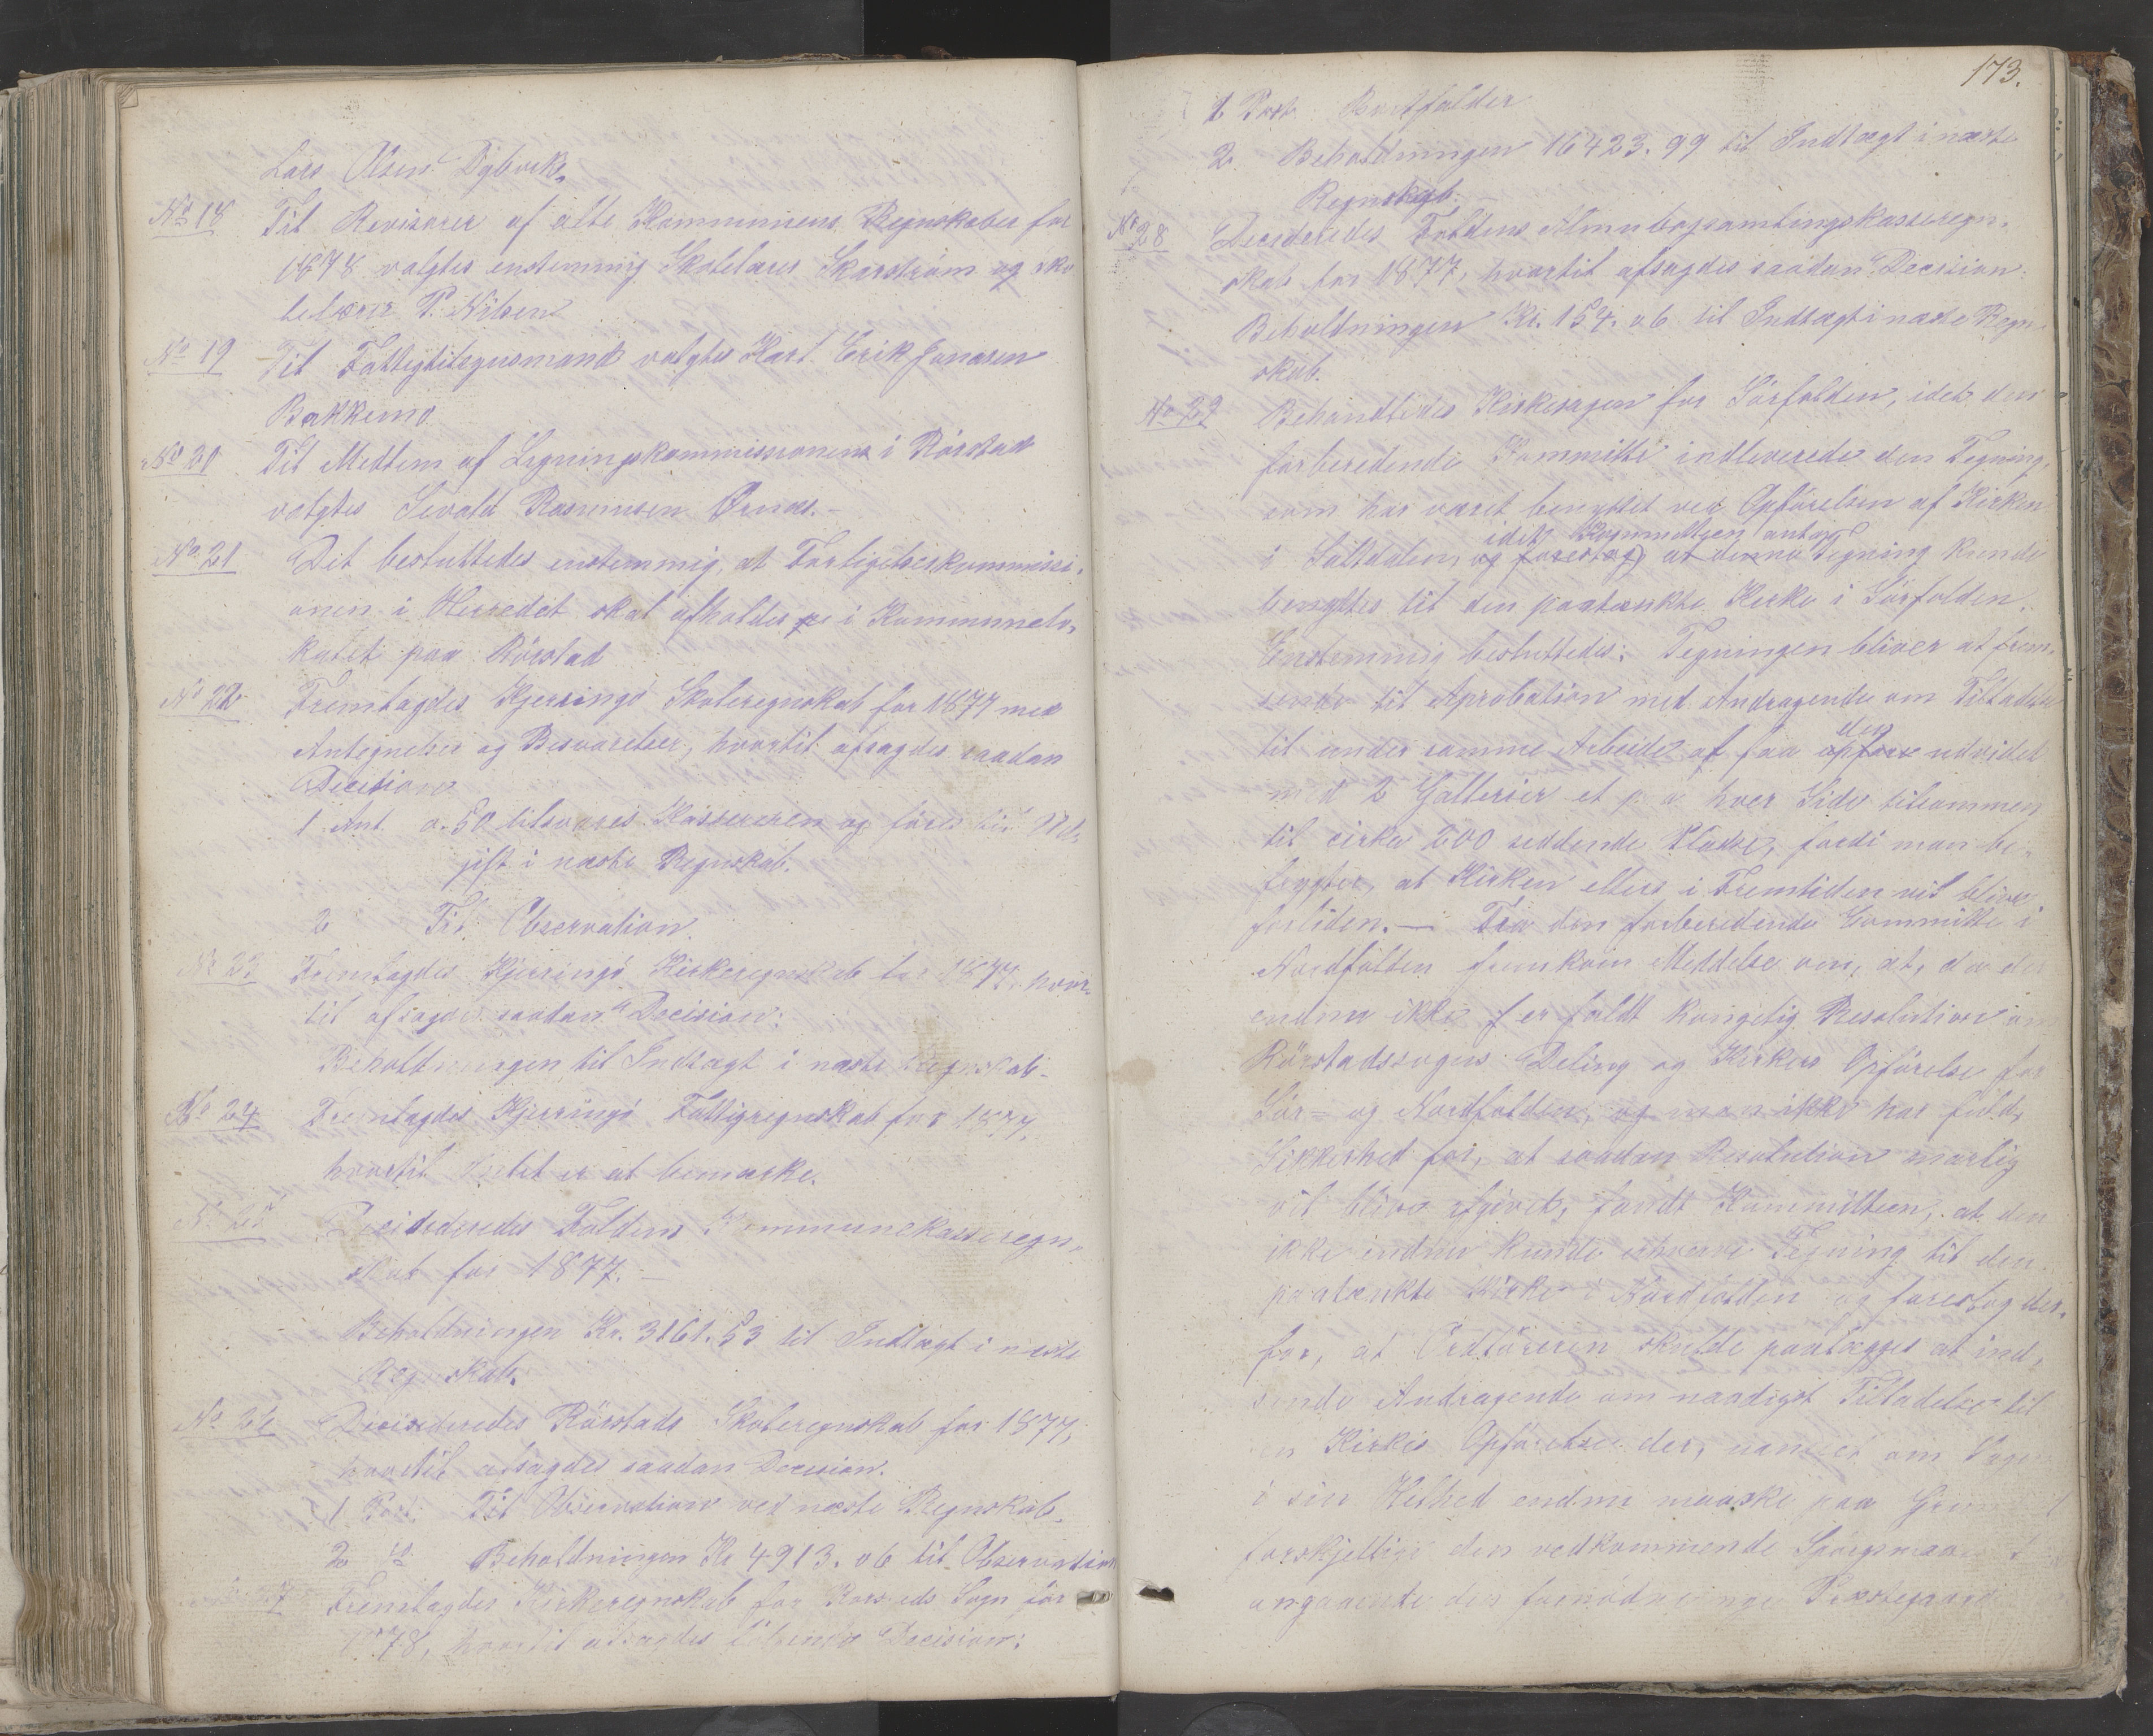 Lars Olsen Dybvik.
No 18 Til Revisorer af alle Kommunens Regnskaber for
1878 valgtes enstemmig Skolelærer Skarstrøm og sko-
lelærer P. Nilsen
No 19 Til Fattigtilsynsmand valgtes Karl Erik Jonasen
Bakkemo
No 20 Til Medlem af Ligningskommissionen i Rörstad
valgtes Sevald Rasmusen Ørnes.-
No 21 Det besluttedes enstemmig, at Forligelseskommissi-
onen i Herredet skal afholdes i Kommunelo-
kalet paa Rörstad
No 22 Fremlagdes Kjerringö Skoleregnskab for 1877 med
Antegnelser og Besvarelser, hvortil afsagdes saadan
Decision
1 Ant. 0.50 tilsvares Kassereren og föres til Ud-
gift i næste Regnskab.
2 Til Observation.
No 23 Fremlagdes Kjerringö Kirkeregnskab for 1877, hvor-
til afsagdes saadan Decision:
Beholdningen til Indtægt i næste Regnskab-
No 24 Fremlagdes Kjerringö Fattigregnskab for 1877,
hvortil Intet er at bemærke.
No 25 Decideredes Foldens Kommunekasseregn-
skab for 1877. –
Beholdningen Kr. 3161.53 til Indtægt i næste
Regnskab.
No 26 Decideredes Rörstads Skoleregnskab for 1877,
hvortil afsagdes saadan Decision.
1 Post. Til Observation ved næste Regnskab.
2 do Beholdningen Kr 4913.06 til Observation
27 Fremlagdes Kirkeregnskab for Rörstads Sogn for
1878, hvortil afsagdes Decision:
173.
1 Post Bortfalder
2 Beholdningen 16423.99 til Indtægt i næste
Regnskab.
No 28 Decideredes Foldens Almubogsamlingskasseregn-
skab for 1877, hvortil afsagdes saadan Decision.
Beholdningen Kr. 154.06 til Indtægt i næste Regn-
skab.
No 29 Behandledes Kirkesagen for Sörfolden, idet den
forberedende Kommitte indleverede den Tegning,
som har været benyttet ved Opförelsen af Kirken
idet Kommitteen antog
i Saltdalen, og foreslog at denne Tegning kunde
benyttes til den paatænkte Kirke i Sörfolden.
Enstemmig besluttedes: Tegningen bliver at frem-
sende til Aprobation med Andragende om Tilladelse
den
til under samme Arbeide at faa opfört udvidet
med 2 Gallerier et paa hver Side tilsammen
til cirka 200 siddende Pladse, fordi man be-
frygter, at Kirken ellers i Fremtiden vil blive
forliden. — Fra den forberedende Committe i
Nordfolden fremkom Meddelse om, at, da der
endnu ikke er faldt kongelig Resolution om
Rörstadssogns Deling og Kirkers Opförelse for
Sör- og Nordfolden, og man ikke har fuld
Sikkerhed for, at saadan Resolution snarlig
vil blive afgivet, fandt Kommitteen, at den
ikke endnu kunde erhverve Tegning til den
paatænkte Kirke i Nordfolden og foreslog der-
for, at Ordföreren skulde paalægges at ind-
sende Andragende om naadigst Tilladelse til
en Kirkes Opförelse der, uanset om Sagen
i sin Helhed endnu maaske paa Grund
forskjellige den vedkommende Spörgsmaal
angaaende den fornödne nye Præstegaard